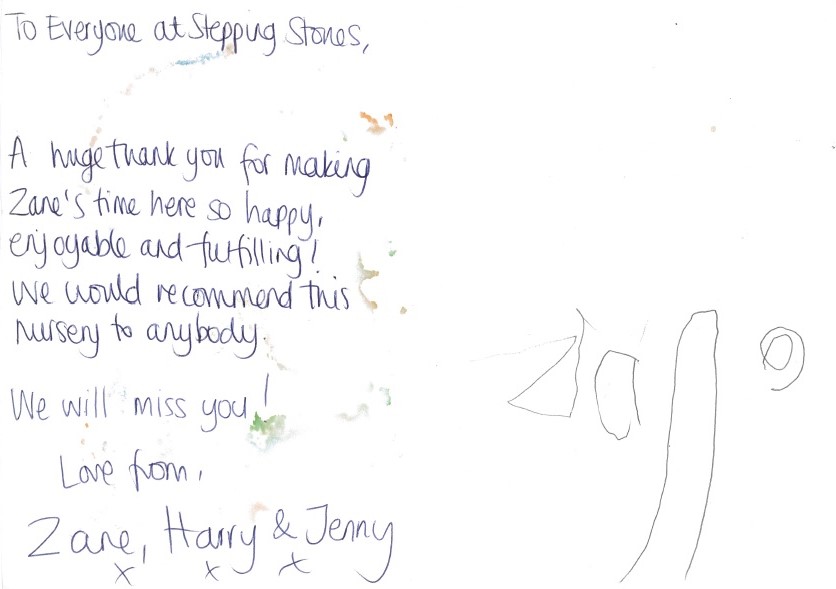 To Everyone at Stepping Stones,
A huge thank you for making
Zane's time here so happy,
enjoyable and fulfilling!
We would recommend this
nursery to anybody.
We will miss you!
Love from,
Zane, Harry & Jenny
x x x